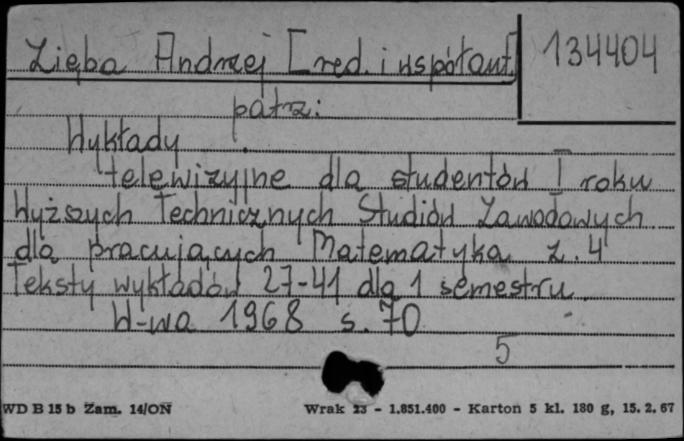 Zięba Andrzej [red. i współaut.]
134404
patrz:
Wykłady
telewizyjne dla studentów I roku
Wyższych Technicznych Studiów Zawodowych
dla pracujących Matematyka z. 4
Teksty wykładów 27-41 dla 1 semestru.
W-wa 1968 s. 70
5
WD B 15 b Zam. 14/ON Wrak 23 - 1.851.400 - Karton 5 kl. 180 g, 15. 2. 67